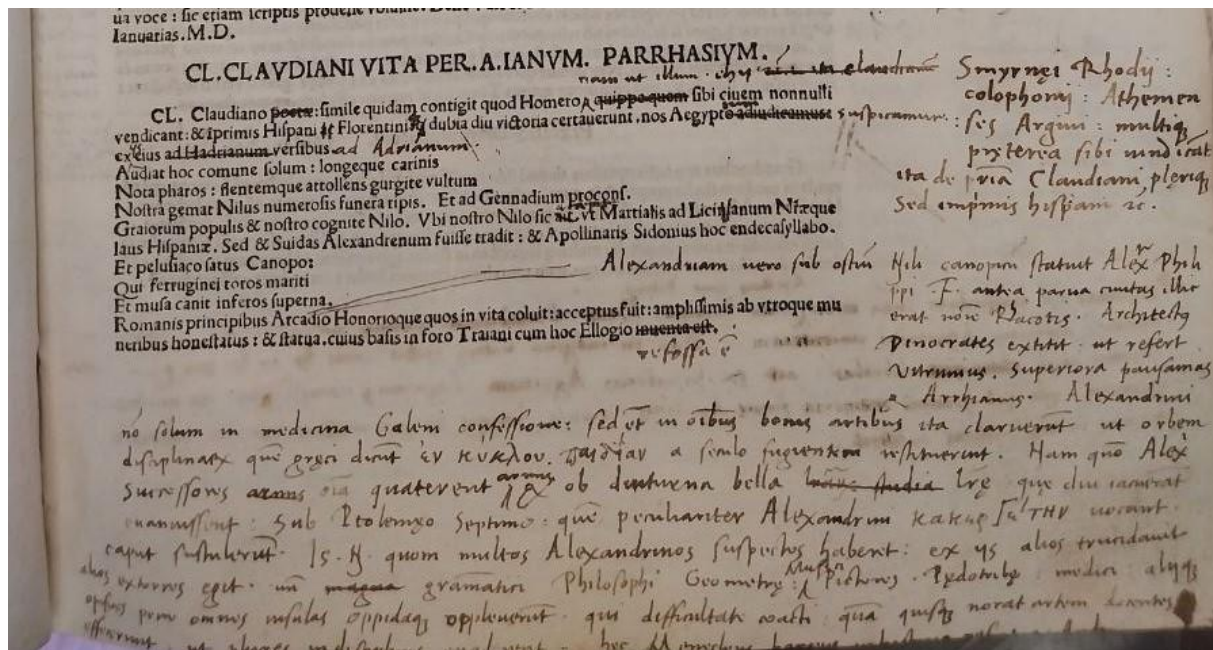 ua voce : sic etiam scriptis
Ianuarias.M.D.
CL.CLAVDIANI VITA PER.A.IANVM. PARRHASIVM.
nam ut illum · chij ita claudianū
CL. Claudiano poetæ:simile quidam contigit quod Homero quippe quem sibi ciuem nonnulli
vendicant:& īprimis Hispani & Florentini dubia diu victoria certauerunt.nos Aegypto adiudicamus suspicamur:
ex eius ad Hadrianum versibus ad Adrianum
Audiat hoc comune solum : longeque carinis
Nota pharos : flentemque attollens gurgite vultum
Nostra gemat Nilus numerosis funera ripis. Et ad Gennadium proconſ.
Graiorum populis & nostro cognite Nilo. Vbi nostro Nilo sic ait vt Martialis ad Licinianum Nr̄æque
laus Hispaniæ. Sed & Suidas Alexandrenum fuisse tradit : & Apollinaris Sidonius hoc endecasyllabo.
Et pelusiaco satus Canopo:
Qui ferruginei toros mariti
Et musa canit inferos superna.
Romanis principibus Arcadio Honorioque quos in vita coluit:acceptus fuit:amplissimis ab vtroque mu
neribus honestatus : & statua.cuius basis in foro Traiani cum hoc Ellogio inuenta est.
refossa ē
Smyrnęi Rhodij :
colophonij : Athenien
ses Argiui : multiq
pręterea sibi uindicāt
ita de priā Claudiani plęriq
Sed imprimis hispani
Alexandriam uero sub ostiū Nili canopicū statuit Alex Phili
ppi F. antea parua ciuitas illic
erat noīe Rhacotis. Architectq
Dinocrates extitit ut refert
Vitruuius. Superiora pausanias
& Arrhianus. Alexandrini
nō solum in medicina Galeni confessione: sed et in oībus bonis artibus ita claruerūt ut orbem
disciplinaɽ quē gręci dicūt ἐν κύκλου παιδίαν a seculo fugientem restituerint. Nam quō Alex
Successores armis oīa quaterent armis & ob diuturna bella studia lr̄ę que diu iacuerāt
euanuissent : Sub Ptolemęo Septimo : quē peculiariter Alexandrini uocant
caput sustulerūt. Is. N. quom multos Alexandrinos suspectos haberet : ex ijs alios trucidauit
alios extorres egit. un̄ gramatici Philosophi Geometrę : Musici Pictores. Pędotribę medici alijq
opifices pene omnes insulas oppidaq oppleuerūt. qui difficultate coacti quā quisq norat artem docentes